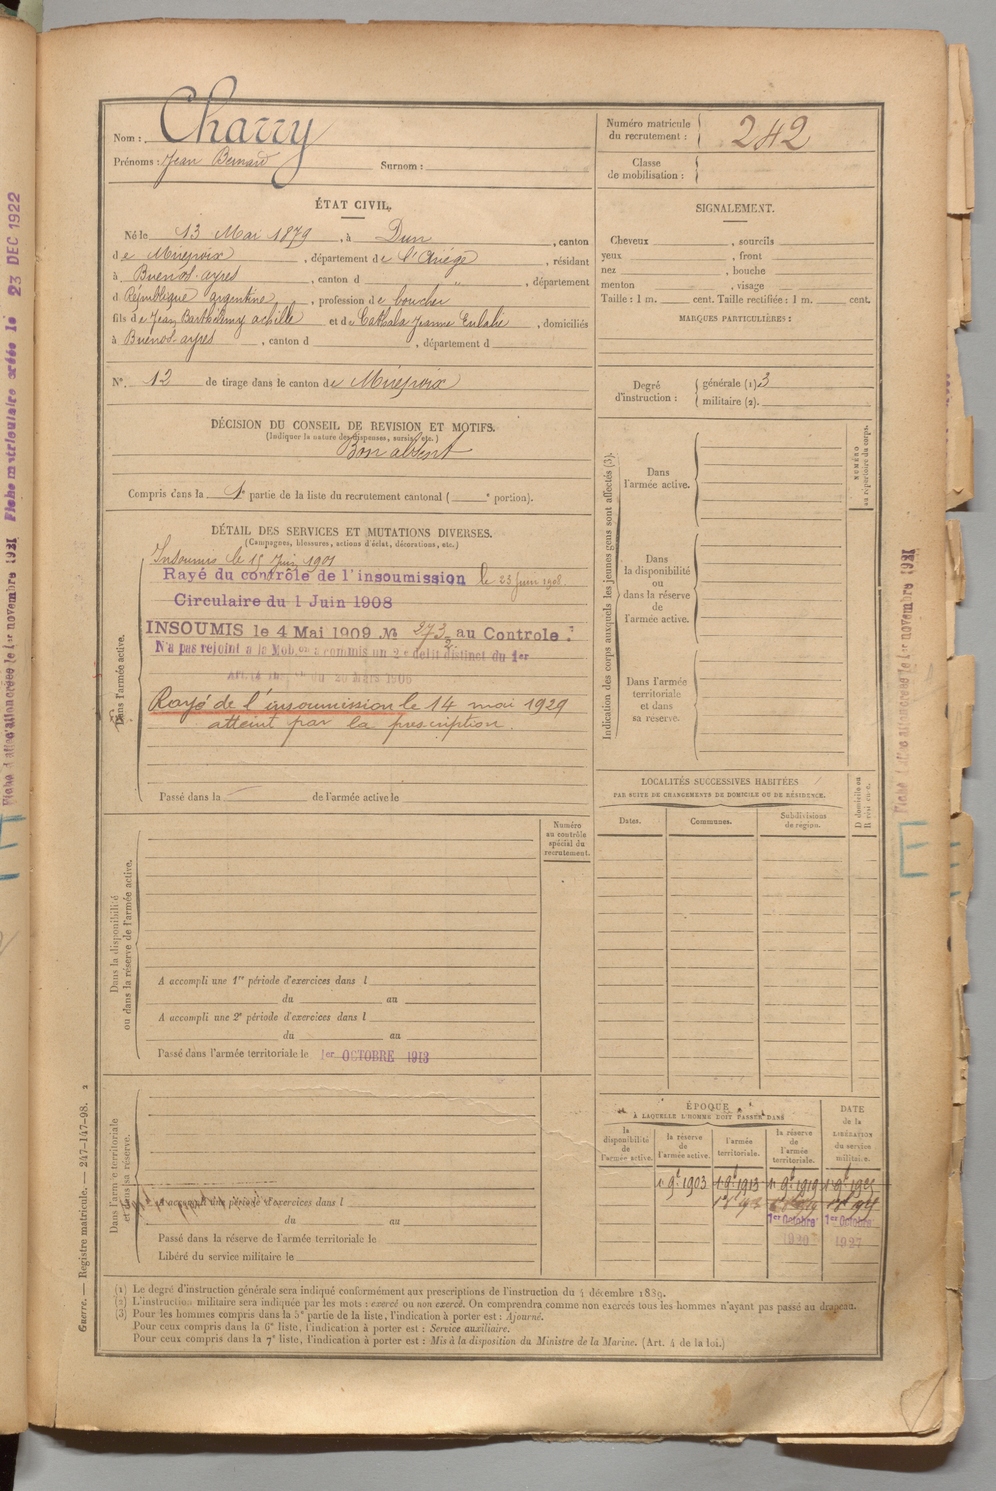 Nom : Charry
Prénoms : Jean Bernard Surnom :
Numéro matricule du recrutement : 242
Classe de mobilisation :
ÉTAT CIVIL.
Né le 13 Mai 1879, à Dun, canton
de Mirepoix, département de l'Ariége, résidant
à Buenos-ayres, canton d ", département
d République argentine, profession de boucher
fils de Jean Barthélemy achille et de Cathala Jeanne Eulalie, domiciliés
à Buenos-ayres, canton d , département d
N°. 12 de tirage dans le canton de Mirepoix
DÉCISION DU CONSEIL DE REVISION ET MOTIFS.
(Indiquer la nature des dispenses, sursis, etc.)
Bon absent
Compris dans la 1e partie de la liste du recrutement cantonal ( e portion).
SIGNALEMENT.
Cheveux , sourcils
yeux , front
nez , bouche
menton , visage
Taille : 1 m. cent. Taille rectifiée : 1 m. cent.
MARQUES PARTICULIÈRES :
Degré d'instruction :
générale (1). 3
militaire (2).
DÉTAIL DES SERVICES ET MUTATIONS DIVERSES.
(Campagnes, blessures, actions d'éclat, décorations, etc.)
Dans l'armée active.
Insoumis le 15 Juin 1901
Rayé du contrôle de l'insoumission le 23 Juin 1908
Circulaire du 1 Juin 1908
INSOUMIS le 4 Mai 1909 N° 273 au Controle
N'a pas rejoint a la Mob. on a commis un 2e délit distinct du 1er
Rayé de l'insoumission le 14 mai 1929
atteint par la prescription
Passé dans la de l'armée active le
Indication des corps auxquels les jeunes gens sont affectés (3).
Dans l'armée active.
Dans la disponibilité ou dans la réserve de l'armée active.
Dans l'armée territoriale et dans sa réserve.
NUMÉRO au répertoire du corps.
LOCALITÉS SUCCESSIVES HABITÉES
PAR SUITE DE CHANGEMENTS DE DOMICILE OU DE RÉSIDENCE.
Dates. Communes. Subdivisions de région. D domicile ou R résidence.
Dans la disponibilité ou dans la réserve de l'armée active.
Numéro au contrôle spécial du recrutement.
A accompli une 1re période d'exercices dans l
du au
A accompli une 2e période d'exercices dans l
du au
Passé dans l'armée territoriale le 1er OCTOBRE 1913
Dans l'armée territoriale et dans sa réserve.
A accompli une période d'exercices dans l
du au
Passé dans la réserve de l'armée territoriale le
Libéré du service militaire le
ÉPOQUE
À LAQUELLE L'HOMME DOIT PASSER DANS
la disponibilité de l'armée active.
la réserve de l'armée active.
l'armée territoriale.
la réserve de l'armée territoriale.
DATE de la LIBÉRATION du service militaire.
1 9e 1903 1 9e 1913 1 9e 1919 1 9e 1925
1er Octobre 1er Octobre
1920 1927
(1) Le degré d'instruction générale sera indiqué conformément aux prescriptions de l'instruction du 4 décembre 1889.
(2) L'instruction militaire sera indiquée par les mots : exercé ou non exercé. On comprendra comme non exercés tous les hommes n'ayant pas passé au drapeau.
(3) Pour les hommes compris dans la 5e partie de la liste, l'indication à porter est : Ajourné.
Pour ceux compris dans la 6e liste, l'indication à porter est : Service auxiliaire.
Pour ceux compris dans la 7e liste, l'indication à porter est : Mis à la disposition du Ministre de la Marine. (Art. 4 de la loi.)
Guerre. — Registre matricule. — 247-147-98. 2
Fiche matriculaire créée le 23 DEC 1922